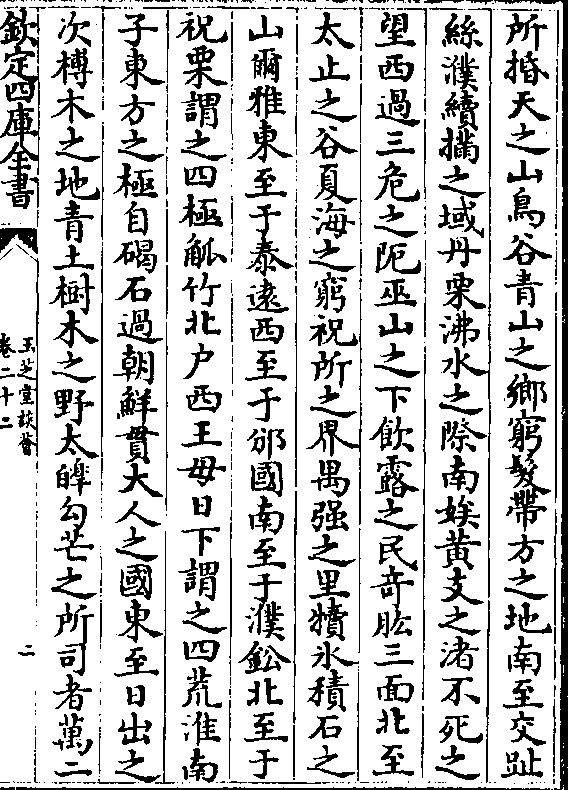 所㨉天之山鳥谷青山之鄉窮髮帶方之地南至交趾
絲濮續樠之域丹栗沸水之際南娭黃支之渚不死之
望西過三危之阨巫山之下飲露之民竒肱三面北至
太止之谷夏海之窮祝所之界禺强之里犢氷積石之
山爾雅東至于泰逺西至于邠國南至于濮鈆北至于
祝栗謂之四極觚竹北户西王母日下謂之四荒淮南
子東方之極自碣石過朝鮮貫大人之國東至日出之
次榑木之地青土樹木之野太皥勾芒之所司者萬二
欽定四庫全書
玉芝堂談薈
卷二十二
二